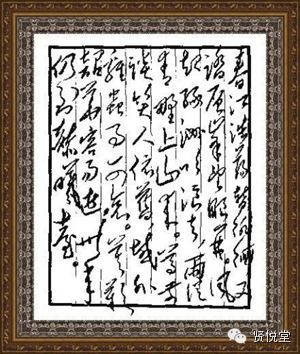 春江浩荡暂徘徊又
踏层峰望眼开。风
起绿洲吹浪去,雨从
青野上山来。尊前
谈笑人依旧,域外
鸡虫事可哀。莫叹
韶华容易逝,卅年
仍到赫曦台。
贤悦堂